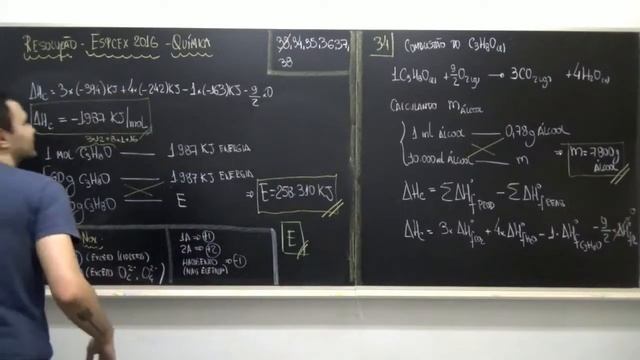 RESOLUÇÃO - ESPCEX 2016 - QUÍMICA
33,34,35,36,37,
38
ΔHc = 3×(-394)KJ + 4×(-242)KJ - 1×(-163)KJ - 9/2 × 0
ΔHc = -1987 KJ/mol
3×12+8×1+16
1 mol C3H8O —— 1987 KJ ENERGIA
60g C3H8O —— 1987 KJ ENERGIA
g C3H8O —— E
⇒ E = 258.310 KJ
E
Nox:
(EXCETO HIDRETO)
(EXCETO O2^2-, O4^2-)
1A ⇒ +1
2A ⇒ +2
HALOGÊNIO ⇒ -1
34 COMBUSTÃO DO C3H8O(l)
1C3H8O(l) + 9/2 O2(g) → 3CO2(g) + 4H2O(v)
CALCULANDO m álcool
1 ml ÁLCOOL —— 0,78g ÁLCOOL
10.000ml ÁLCOOL —— m
⇒ m = 7800g ÁLCOOL
ΔHc = ∑ΔH°f PROD - ∑ΔH°f REAG
ΔHc = 3×ΔH°f CO2 + 4×ΔH°f H2O - 1·ΔH°f C3H8O - 9/2 × ΔH°f O2